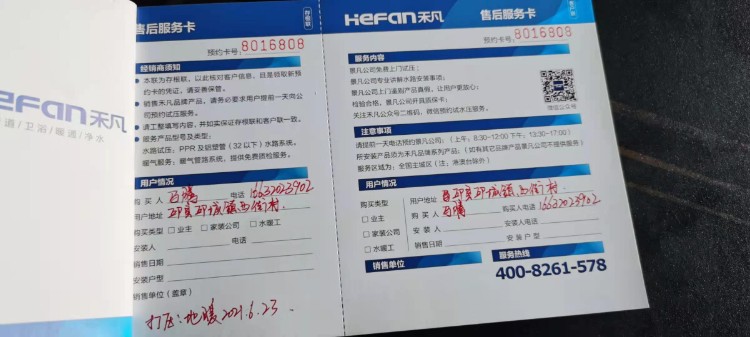 HEFAN禾凡
道/卫浴/暖通/净水
售后服务卡
存根联
预约卡号:8016808
经销商须知
本联为存根联，以此核对客户信息，且是领取新预
约卡的凭证，请妥善保管。
销售禾凡品牌产品，请务必要求用户提前一天向公
司预约试压服务。
请工整填写内容，并如实保证存根联和客户联一致。
服务产品型号及类型:
水路试压: PPR 及铝塑管（32 以下）水路系统。
暖气服务: 暖气管路系统，提供免费质检服务。
用户情况
购 买 人
电话 16632023902
用户地址
购买类型 □ 业主 □ 家装公司 □ 水暖工
安装人 电话
销售日期
安装户型
销售单位（盖章）
打压:地暖2021.6.23.
HEFAN禾凡
售后服务卡
预约卡号:8016808
服务内容
景凡公司免费上门试压;
景凡公司专业讲解水路安装事项;
景凡公司上门鉴别产品真假，让用户更放心;
检验合格，景凡公司开具质保卡;
关注禾凡公众号二维码，微信预约试水压服务。
微信公众号
注意事项
请提前一天电话预约景凡公司:（上午: 8:30-12:00 下午: 13:30-17:00）
所安装产品须为禾凡品牌系列产品;（如有其它品牌产品景凡公司不提供服务）
服务区域为: 全国主城区（注: 港澳台除外）
用户情况
购买类型
□ 业主
□ 家装公司
□ 水暖工
用户地址
购 买 人
购买人电话 16632023902
安 装 人 安装人电话
销售日期 安 装 户 型
销售单位
服务热线
400-8261-578